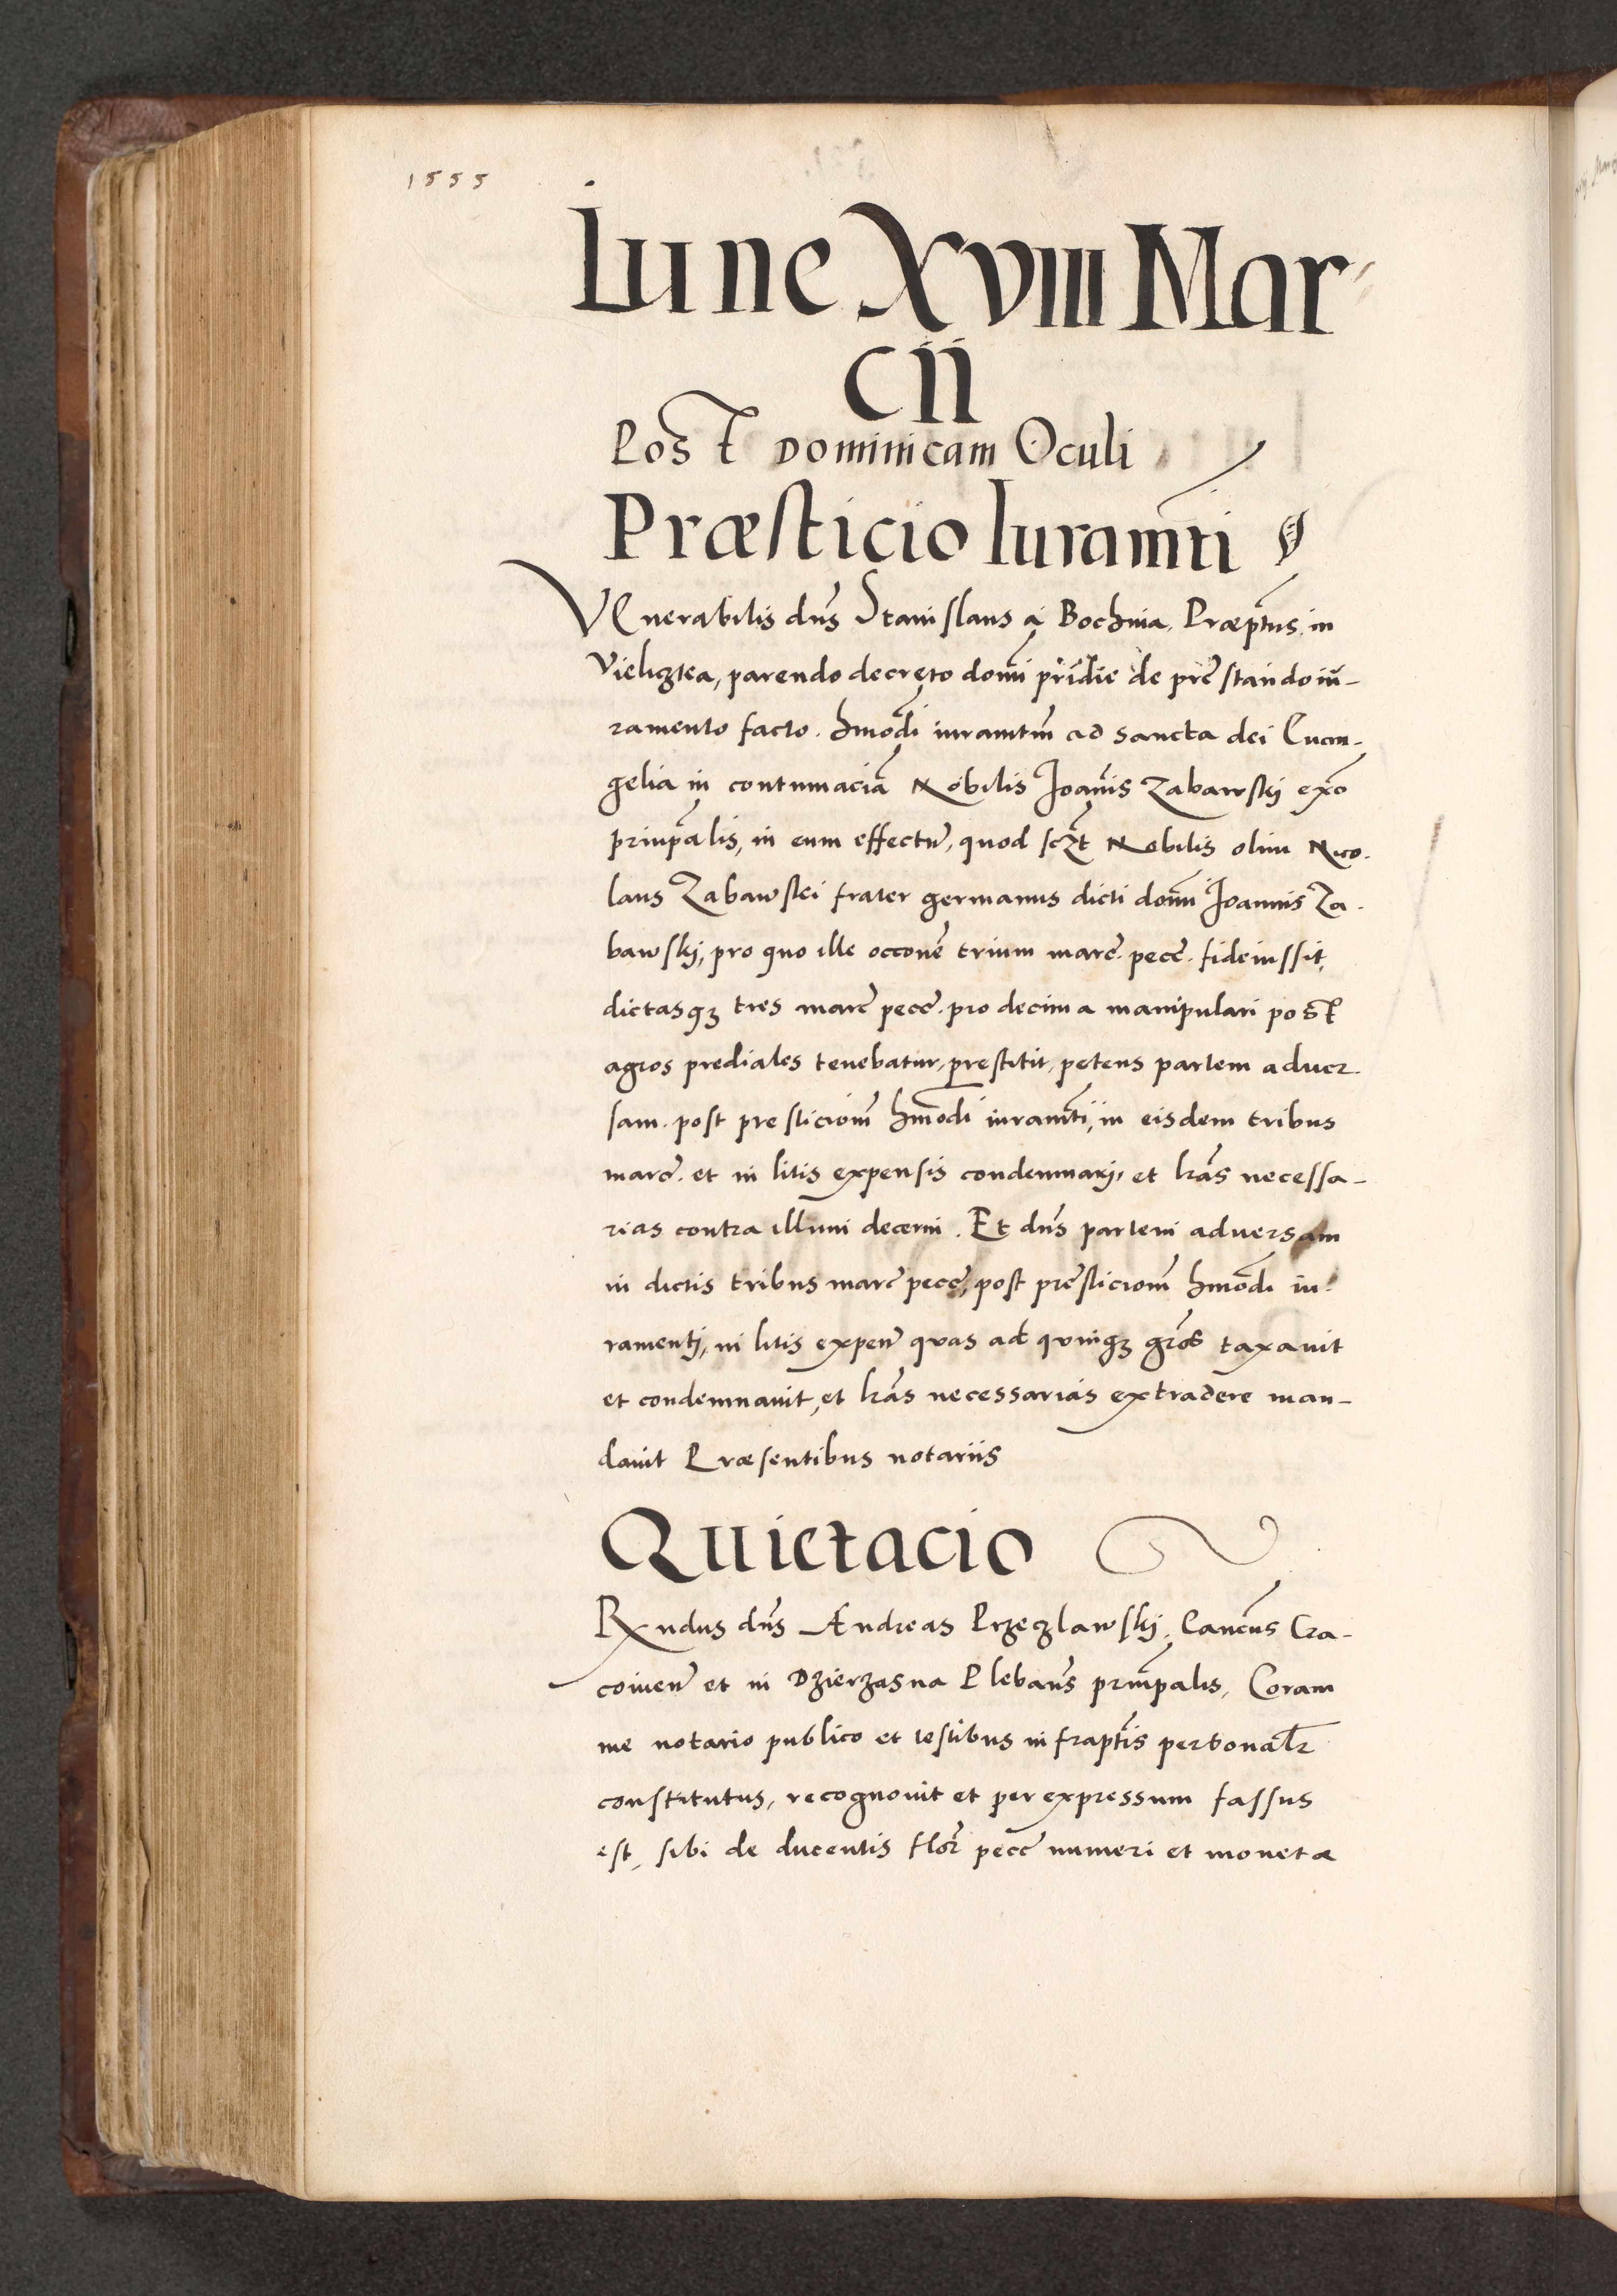 1555
Lune XVIII Mar
cii
Post Dominicam Oculi
Præsticio Iuramti
VEnerabilis dns Stanislaus a Bochnia, Præptus in
Vieliztea, parendo decreto domi pridie de pre stando iu-
ramento facto. hmodi iuramtm ad sancta dei Euan-
gelia in contumaciã Nobilis Joanis Zabawskj exo
principalis, in eum effectum, quod sczt Nobilis olim Nico-
laus Zabawskei frater germanus dicti domi Joannis Za-
bawskj, pro quo ille occone trium marc. pecc. fideiussit,
dictasqz tres marc pecc. pro decima manipulari post
agros prediales tenebatur, prestitit, petens partem aduer-
sam. post presticiom hmodi iuramti, in eisdem tribus
marc. et in litis expensis condemnarj, et lras necessa-
rias contra illum decerni. Et dns partem adversam
in dictis tribus marc pecc, post presticiom hmodi iu-
ramentj, in litis expen quas ad quinqz gros taxauit
et condemnauit, et lras necessarias extradere man-
dauit Præsentibus notariis
Quietacio
Rxndus dns Andreas Przeczlawskj, Cancus Cra-
couien et in Dzierzasna Plebans principalis, Coram
me notario publico et testibus infraptis personalr
constitutus, recognouit et per expressum fassus
est, sibi de ducentis flor pecc numeri et monetæ